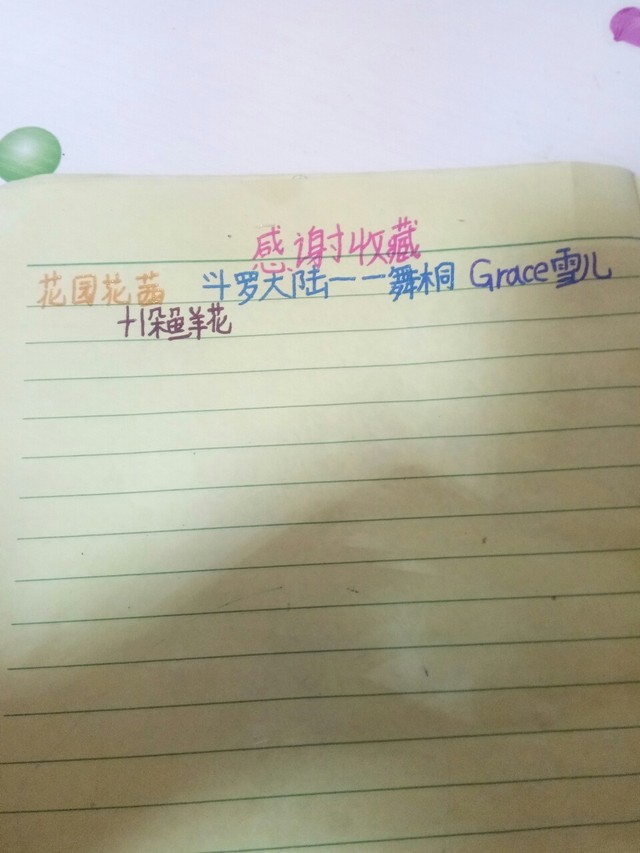 感谢收藏
花园花茜 斗罗大陆一一舞桐 Grace雪儿
十1朵鲜花